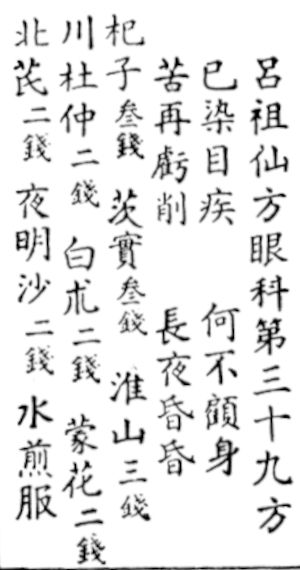 呂祖仙方眼科第三十九方
已染目疾　何不顧身
苦再虧削　長夜昏昏
杞子叁錢　茨實叁錢　淮山三錢
川杜仲二錢　白朮二錢　蒙花二錢
北芪二錢　夜明沙二錢　水煎服